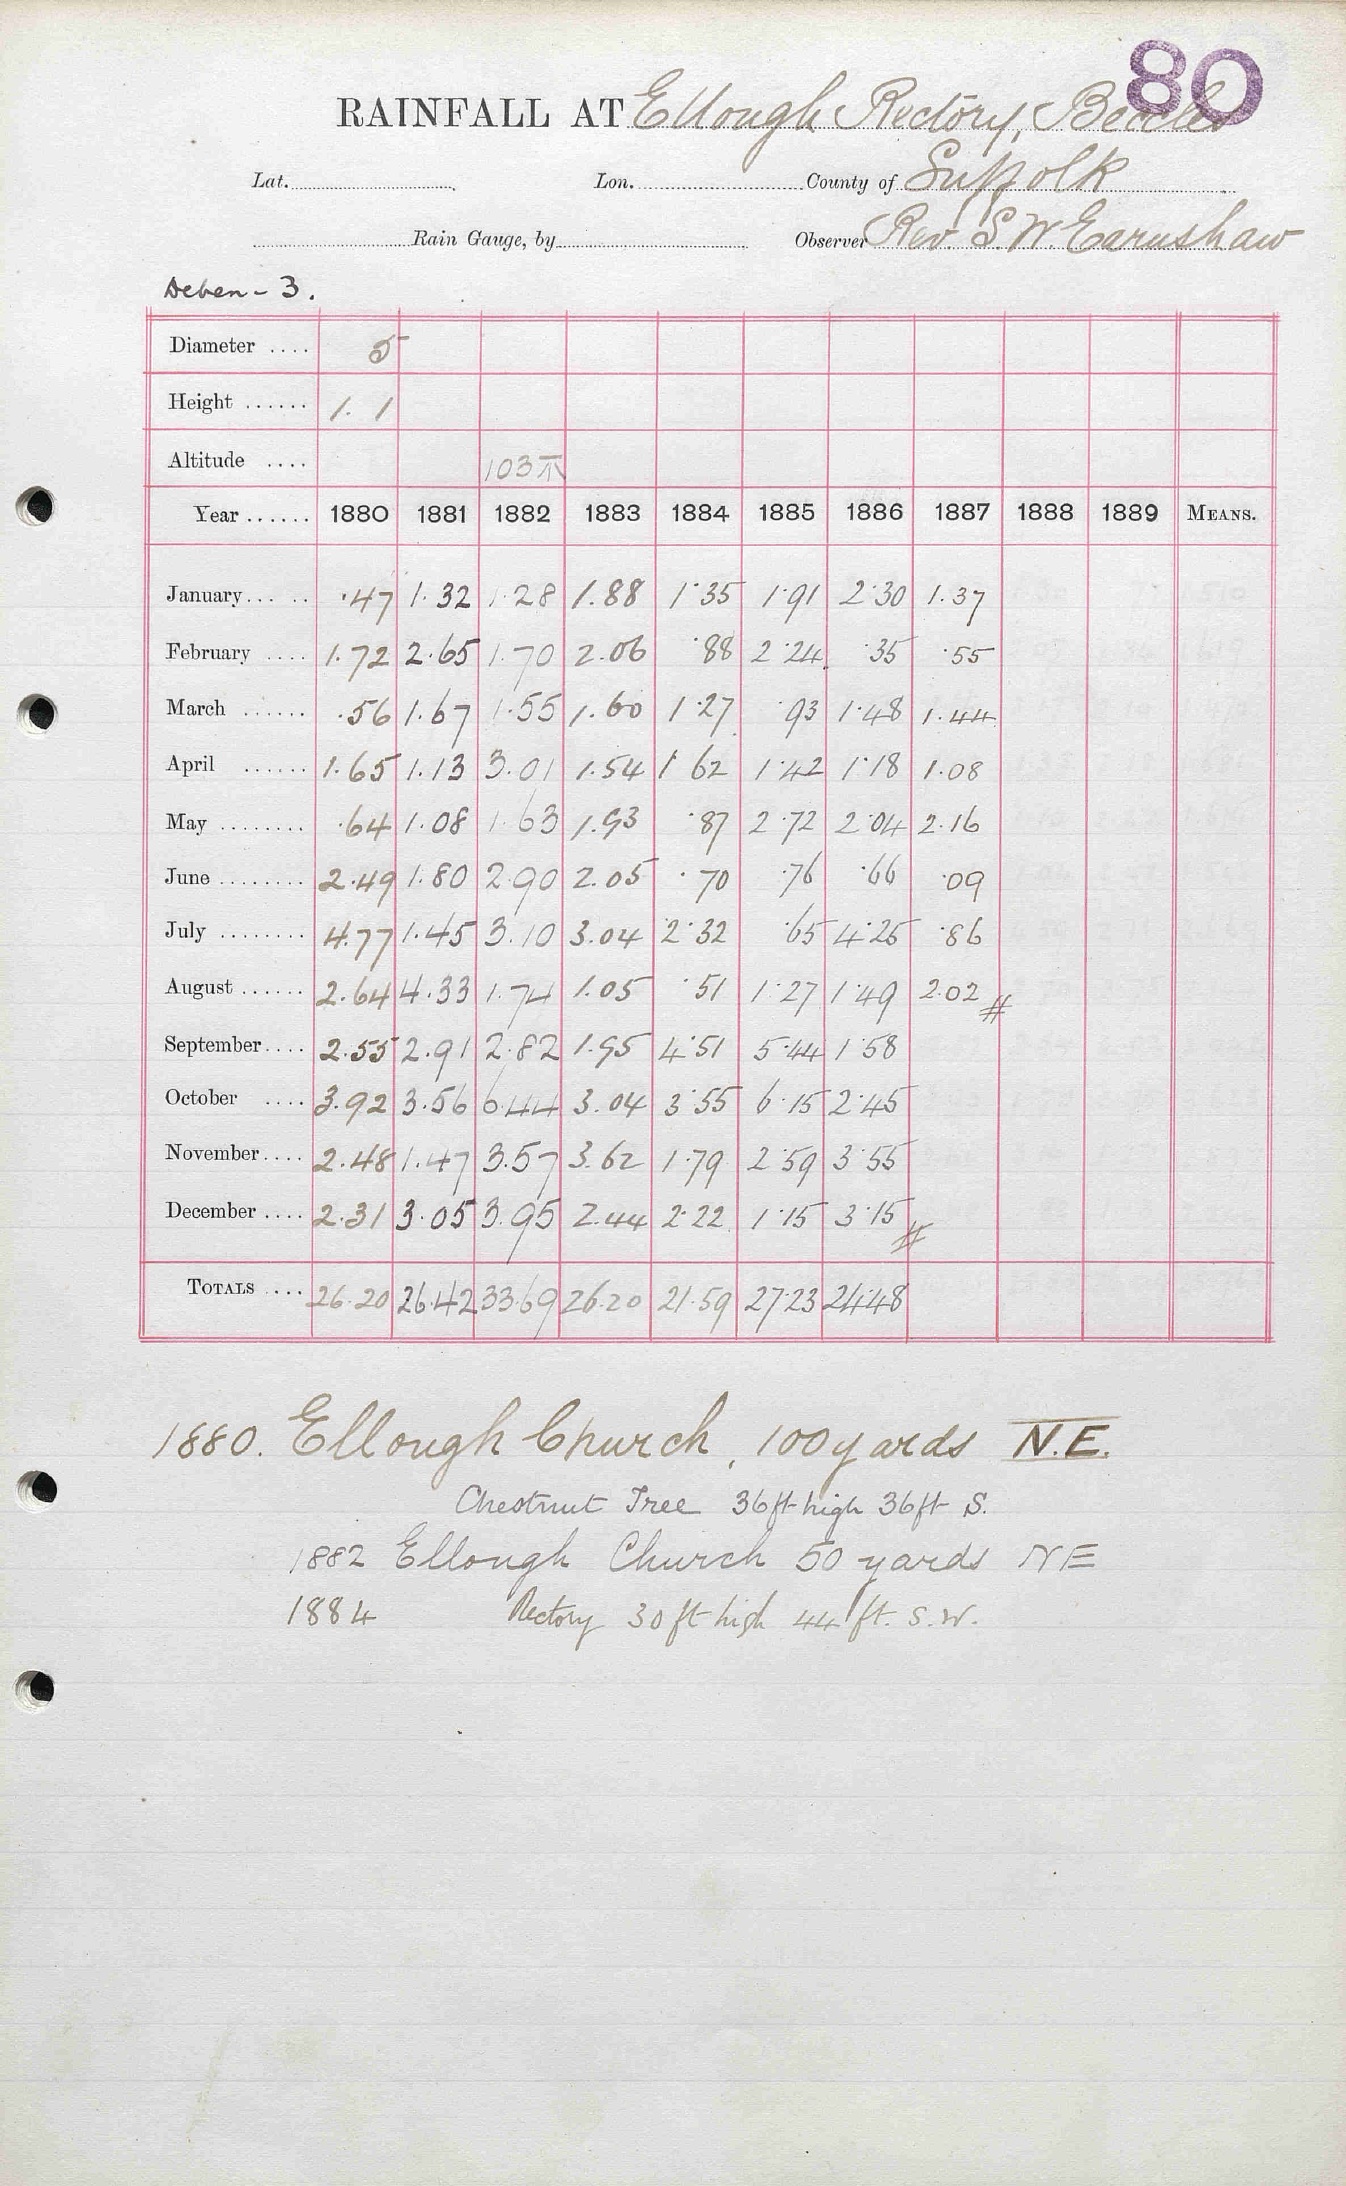 80
RAINFALL AT Ellough Rectory, Beccles
Lat. Lon. County of Suffolk
Rain Gauge, by Observer Rev. S. W. Earnshaw
Deben - 3.
Diameter .... 5
Height ...... 1. 1
Altitude .... 103
Year ...... 1880 1881 1882 1883 1884 1885 1886 1887 1888 1889 MEANS.
January... .. .47 1.32 1.28 1.88 1.35 1.91 2.30 1.37
February .... 1.72 2.65 1.70 2.06 .88 2.24 .35 .55
March ...... .56 1.67 1.55 1.60 1.27 .93 1.48 1.44
April ...... 1.65 1.13 3.01 1.54 1 62 1.42 1.18 1.08
May ........ .64 1.08 1.63 1.93 .87 2.72 2.04 2.16
June ........ 2.49 1.80 2.90 2.05 .70 .76 .66 .09
July ........ 4.77 1.45 3.10 3.04 2.32 .65 4.25 .86
August ...... 2.64 4.33 1.74 1.05 .51 1.27 1.49 2.02 #
September.... 2.55 2.91 2.82 1.95 4.51 5.44 1.58
October .... 3.92 3.56 6.44 3.04 3.55 6.15 2.45
November.... 2.48 1.47 3.57 3.62 1.79 2.59 3.55
December .... 2.31 3.05 3.95 2.44 2.22 1.15 3.15 #
TOTALS .... 26.20 26.42 33.69 26.20 21.59 27.23 24.48
1880. Ellough Church, 100 yards N.E.
Chestnut Tree 36 ft high 36 ft S.
1882 Ellough Church 50 yards NE
1884 Rectory 30 ft high 44 ft. S.W.